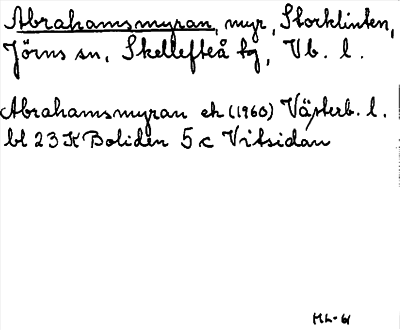 Abrahamsmyran, myr, Storklinten,
Jörns sn, Skellefteå tg, Vb. l.
Abrahamsmyran ek (1960) Västerb. l.
bl 23 K Boliden 5 c Vitsidan